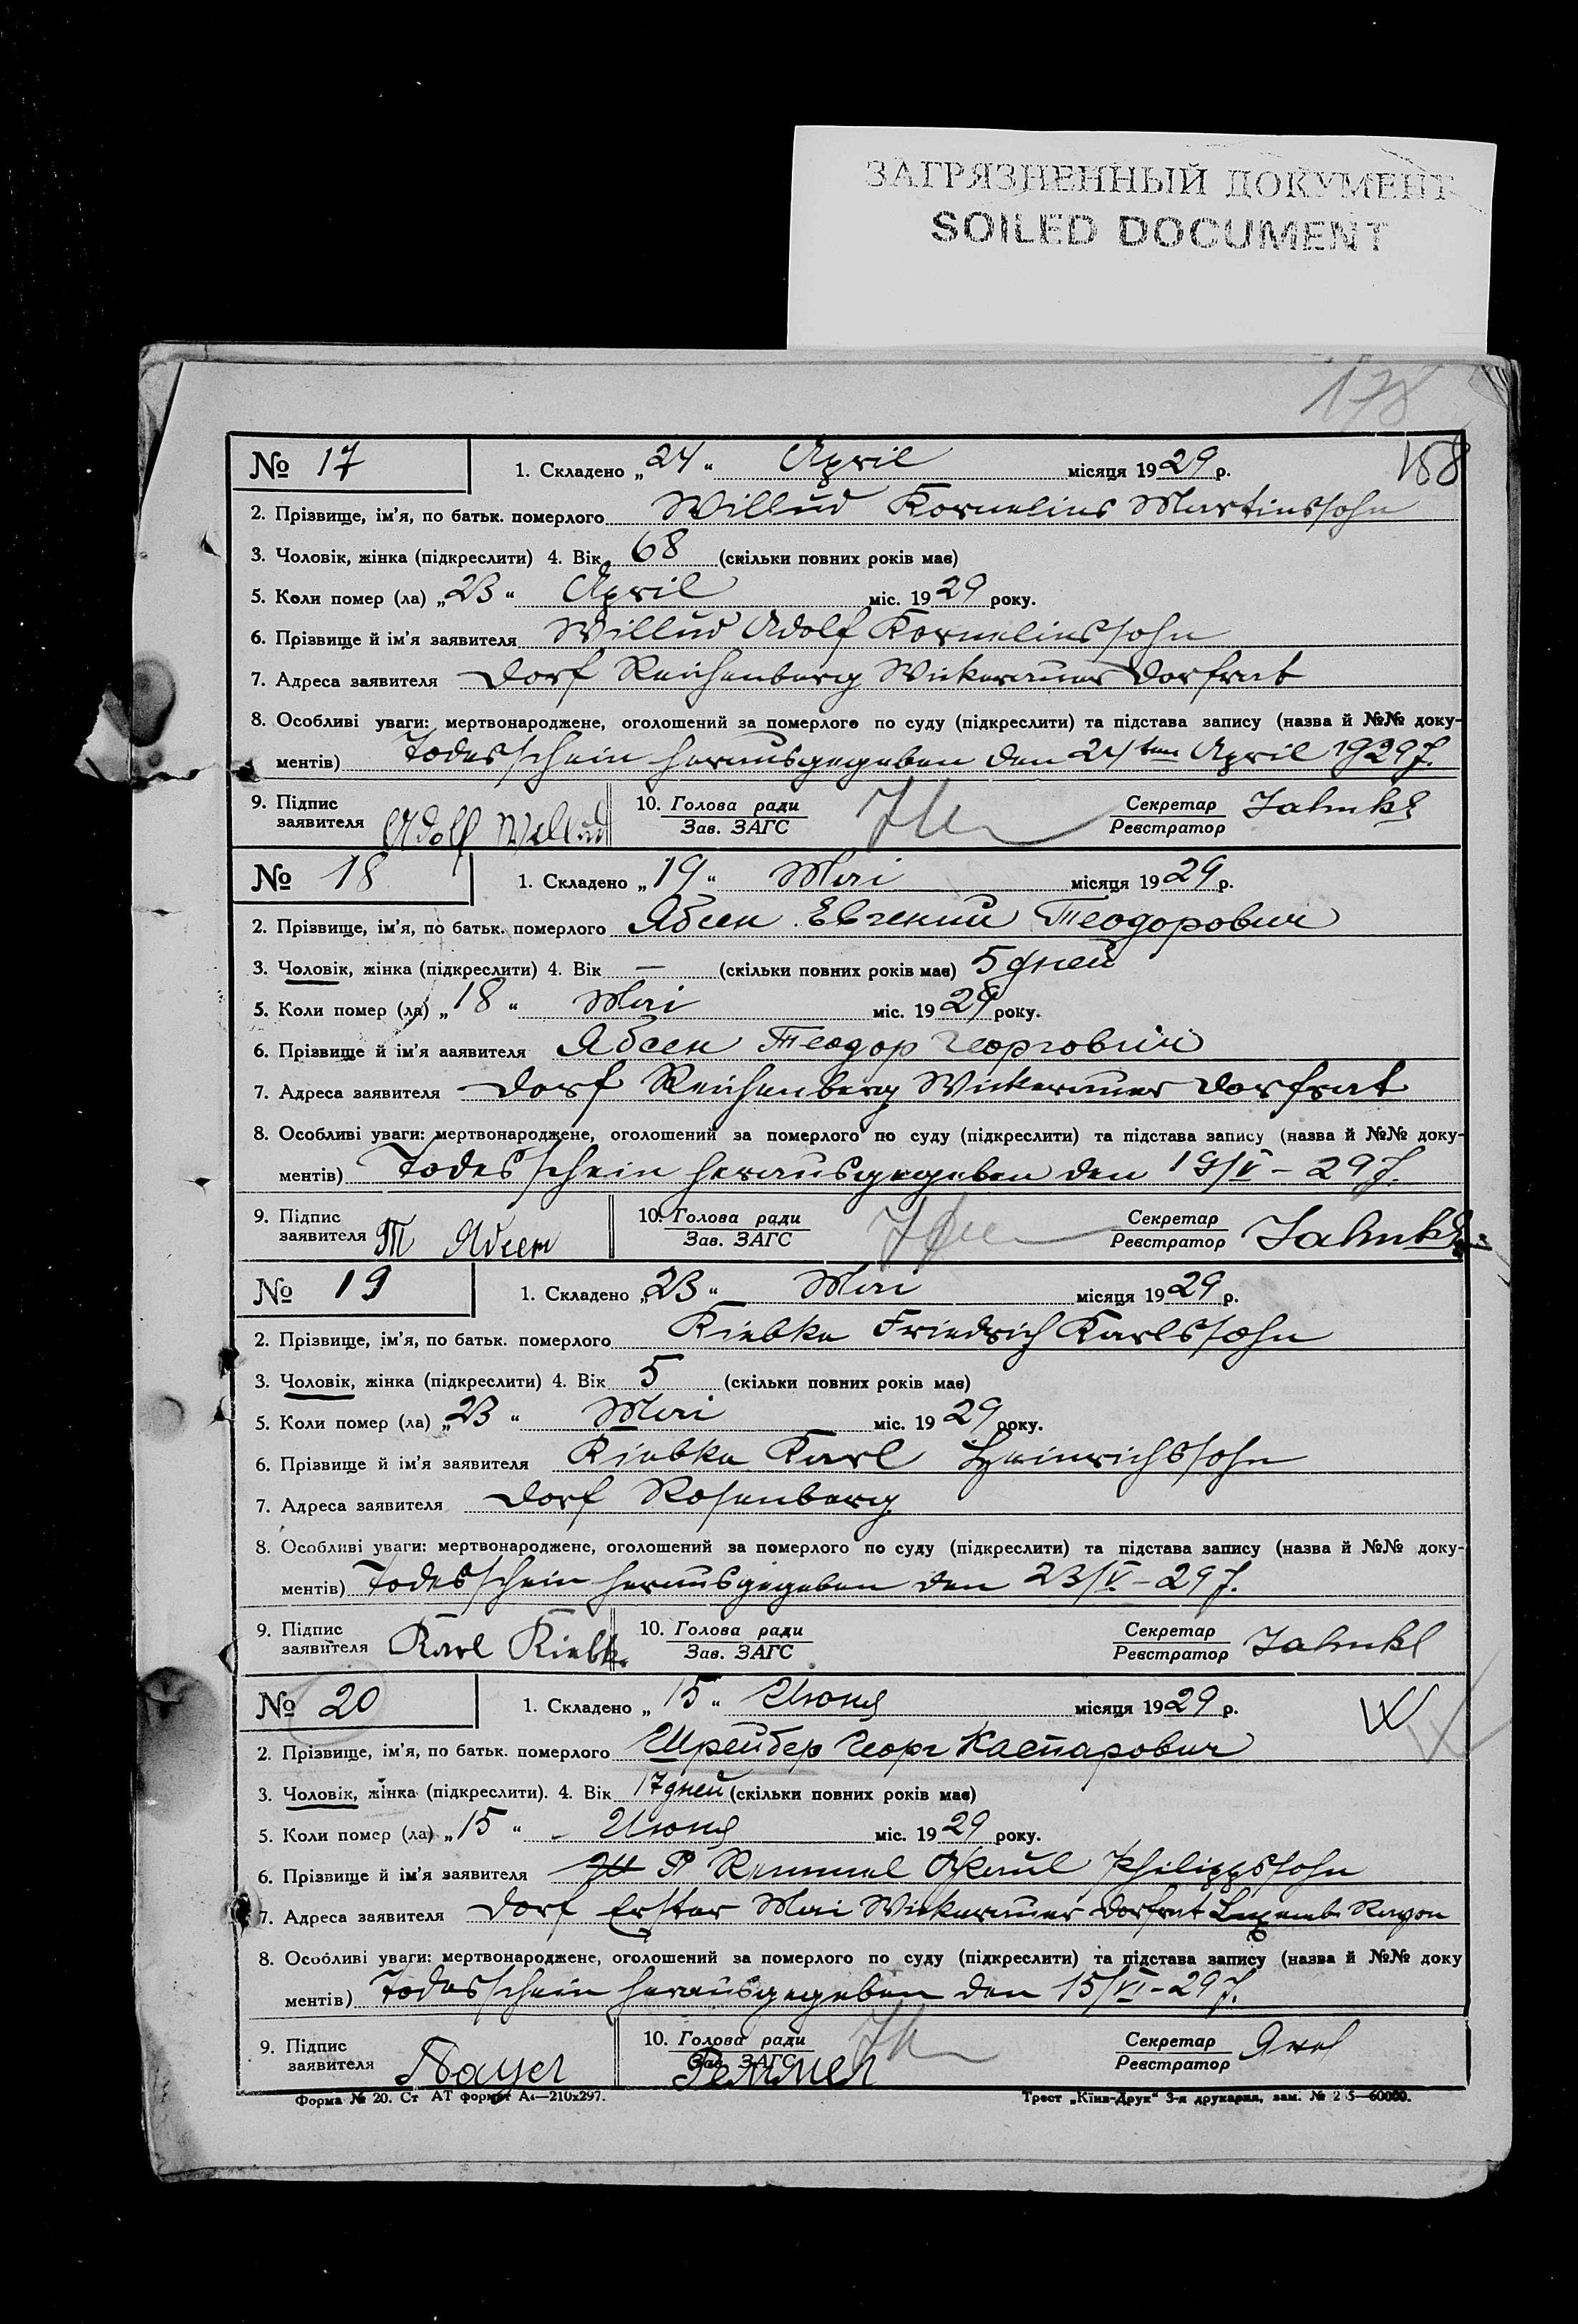 ЗАГРЯЗНЕННЫЙ ДОКУМЕНТ
SOILED DOCUMENT
178
188
№ 17 1. Складено „24“ April місяця 1929 р.
2. Прізвище, ім'я, по батьк. померлого Willüd Kornelius Martinssohn
3. Чоловік, жінка (підкреслити) 4. Вік 68 (скільки повних років має)
5. Коли помер (ла) „23“ April міс. 1929 року.
6. Прізвище й ім'я заявителя Willüd Adolf Korneliussohn
7. Адреса заявителя Dorf Reichenberg Wickerauer Dorfrat
8. Особливі уваги: мертвонароджене, оголошений за померлого по суду (підкреслити) та підстава запису (назва й №№ доку-
ментів) Todesschein herausgegeben den 24ten April 1929 J.
9. Підпис заявителя Adolf Willüd 10. Голова ради Зав. ЗАГС Секретар Реєстратор Jahnke
№ 18 1. Складено „19“ Mai місяця 1929 р.
2. Прізвище, ім'я, по батьк. померлого Ябсен Евгений Теодорович
3. Чоловік, жінка (підкреслити) 4. Вік — (скільки повних років має) 5 дней
5. Коли помер (ла) „18“ Mai міс. 1929 року.
6. Прізвище й ім'я заявителя Ябсен Теодор Георгович
7. Адреса заявителя Dorf Reichenberg Wickerauer Dorfrat
8. Особливі уваги: мертвонароджене, оголошений за померлого по суду (підкреслити) та підстава запису (назва й №№ доку-
ментів) Todesschein herausgegeben den 19/V – 29 J.
9. Підпис заявителя Т Ябсен 10. Голова ради Зав. ЗАГС Секретар Реєстратор Jahnke
№ 19 1. Складено „23“ Mai місяця 1929 р.
2. Прізвище, ім'я, по батьк. померлого Riebke Friedrich Karlssohn
3. Чоловік, жінка (підкреслити) 4. Вік 5 (скільки повних років має)
5. Коли помер (ла) „23“ Mai міс. 1929 року.
6. Прізвище й ім'я заявителя Riebke Karl Heinrichssohn
7. Адреса заявителя Dorf Rosenberg
8. Особливі уваги: мертвонароджене, оголошений за померлого по суду (підкреслити) та підстава запису (назва й №№ доку-
ментів) Todesschein herausgegeben den 23/V – 29 J.
9. Підпис заявителя Karl Riebke 10. Голова ради Зав. ЗАГС Секретар Реєстратор Jahnke
№ 20 1. Складено „15“ Июня місяця 1929 р.
2. Прізвище, ім'я, по батьк. померлого Шрейбер Георг Каспарович
3. Чоловік, жінка (підкреслити). 4. Вік 17 дней (скільки повних років має)
5. Коли помер (ла) „15“ Июня міс. 1929 року.
6. Прізвище й ім'я заявителя Remmel Paul Philippssohn
7. Адреса заявителя Dorf Erster Mai Wickerauer Dorfrat Luxemb. Rayon
8. Особливі уваги: мертвонароджене, оголошений за померлого по суду (підкреслити) та підстава запису (назва й №№ доку
ментів) Todesschein herausgegeben den 15/VI – 29 J.
9. Підпис заявителя 10. Голова ради Зав. ЗАГС Реммел Секретар Реєстратор
Форма № 20. Ст АТ формат А4—210х297. Трест „Київ-Друк“ 3-я друкарня, зам. № 2 5—60000.